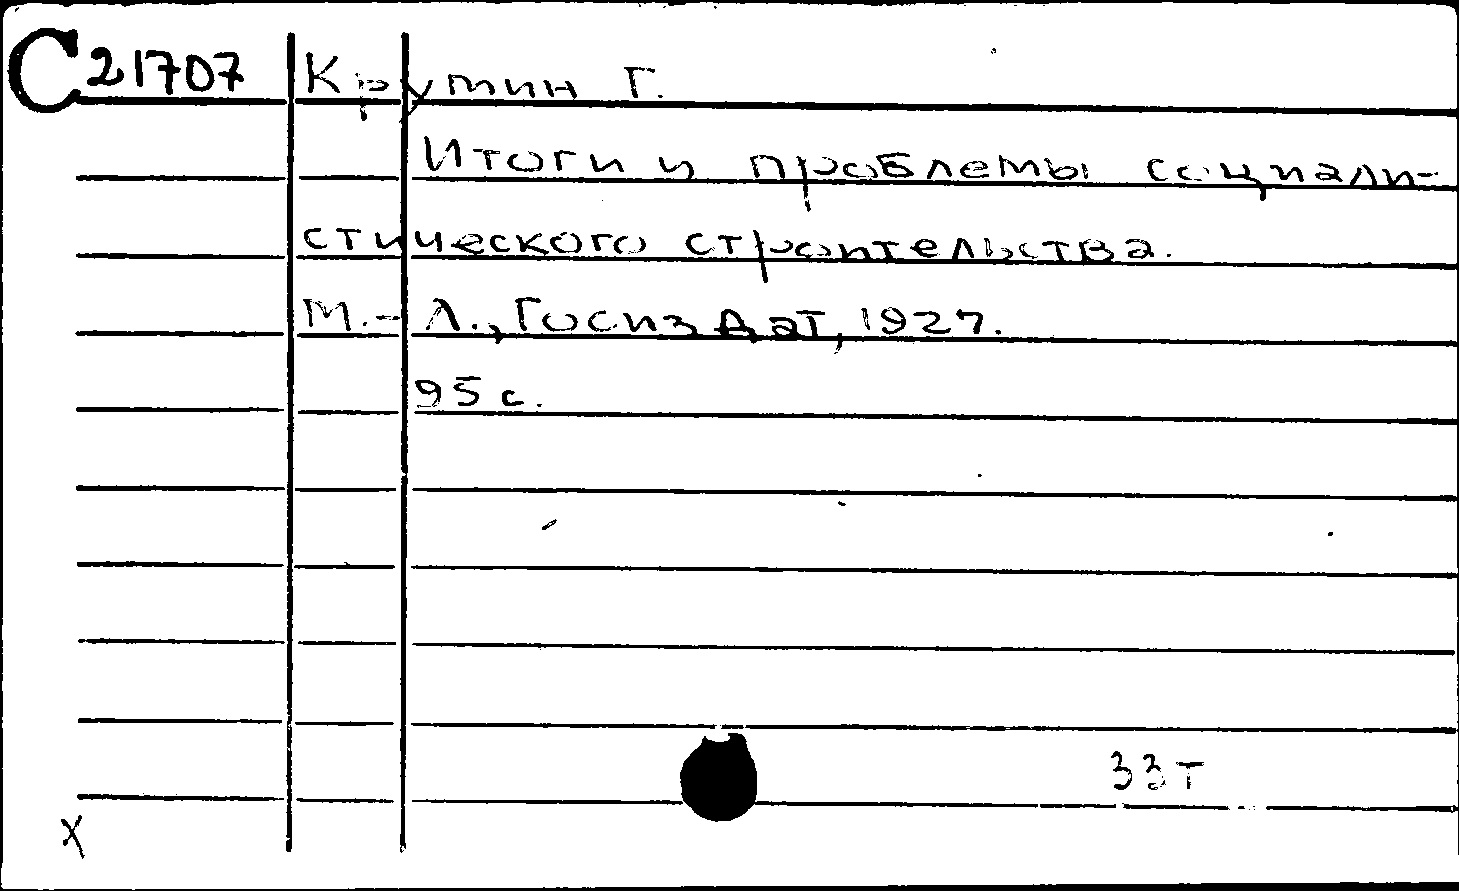 С21707 Крутин Г.
Итоги и проблемы социали-
стического строительства.
М.-Л., Госиздат, 1927.
95 с.
33т
х